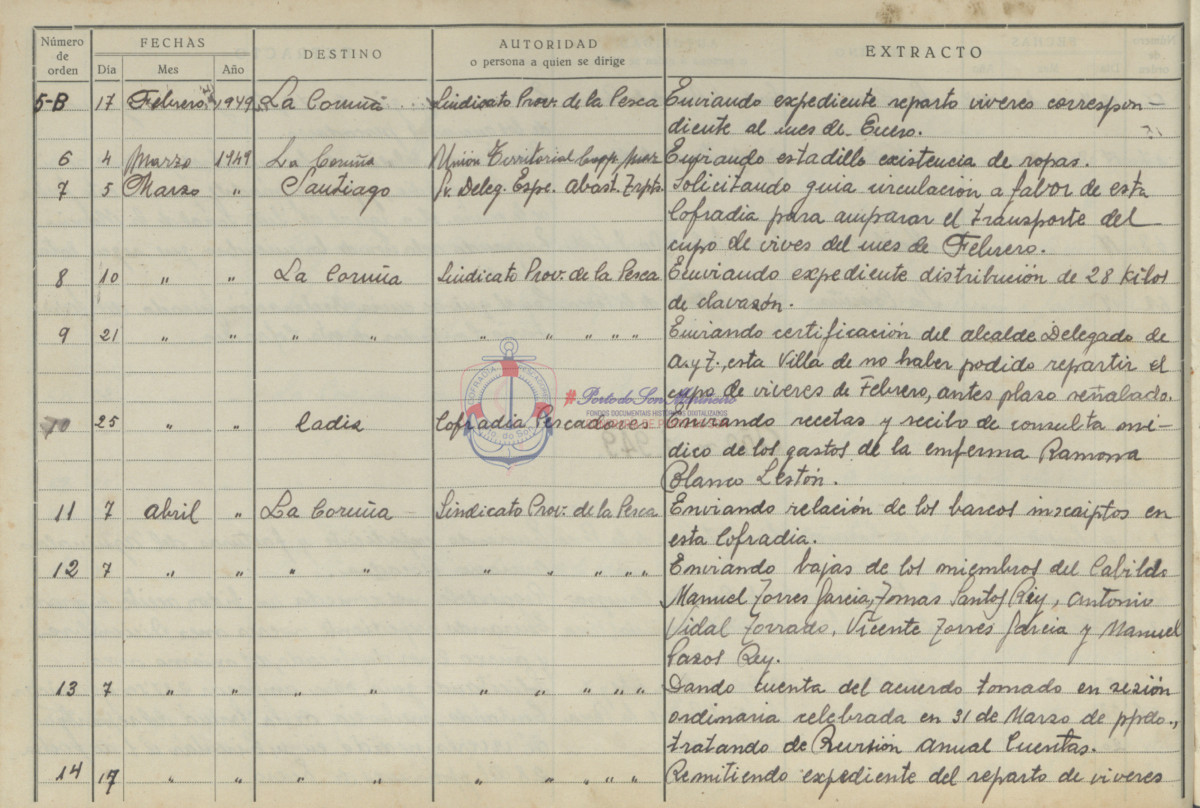 Número de orden FECHAS DESTINO AUTORIDAD o persona a quien se dirige EXTRACTO
Día Mes Año
5-B 17 Febrero 1949 La Coruña Sindicato Prov. de la Pesca Enviando expediente reparto viveres correspon-
diente al mes de Enero.
6 4 Marzo 1949 La Coruña Unión Territorial Coop. Mar Enviando estadillo existencia de ropas.
7 5 Marzo " Santiago Deleg. Espe. Abast. Trpts. Solicitando guia circulación a fabor de esta
Cofradia para amparar el transporte del
cupo de vives del mes de Febrero.
8 10 " " La Coruña Sindicato Prov. de la Pesca Enviando expediente distribución de 28 kilos
de clavazón.
9 21 " " " " " " " " " Enviando certificación del alcalde Delegado de
A. y T., esta Villa de no haber podido repartir el
cupo de viveres de Febrero, antes plazo señalado.
10 25 " " Cadiz Cofradia Pescadores Enviando recetas y recibo de consulta mé-
dico de los gastos de la enferma Ramona
Blanco Lestón.
11 7 abril " La Coruña Sindicato Prov. de la Pesca Enviando relación de los barcos inscriptos en
esta Cofradia.
12 7 " " " " " " " " " Enviando bajas de los miembros del Cabildo
Manuel Torres Garcia, Tomas Santos Rey, Antonio
Vidal Torrado, Vicente Torres Garcia y Manuel
Pazos Rey.
13 7 " " " " " " " " " Dando cuenta del acuerdo tomado en sesión
ordinaria celebrada en 31 de Marzo de ppdo.,
tratando de Revisión Anual Cuentas.
14 17 " " " " " " " " " Remitiendo expediente del reparto de viveres
#Porto do Son Mariñeiro
FONDOS DOCUMENTAIS HISTÓRICOS DIXITALIZADOS